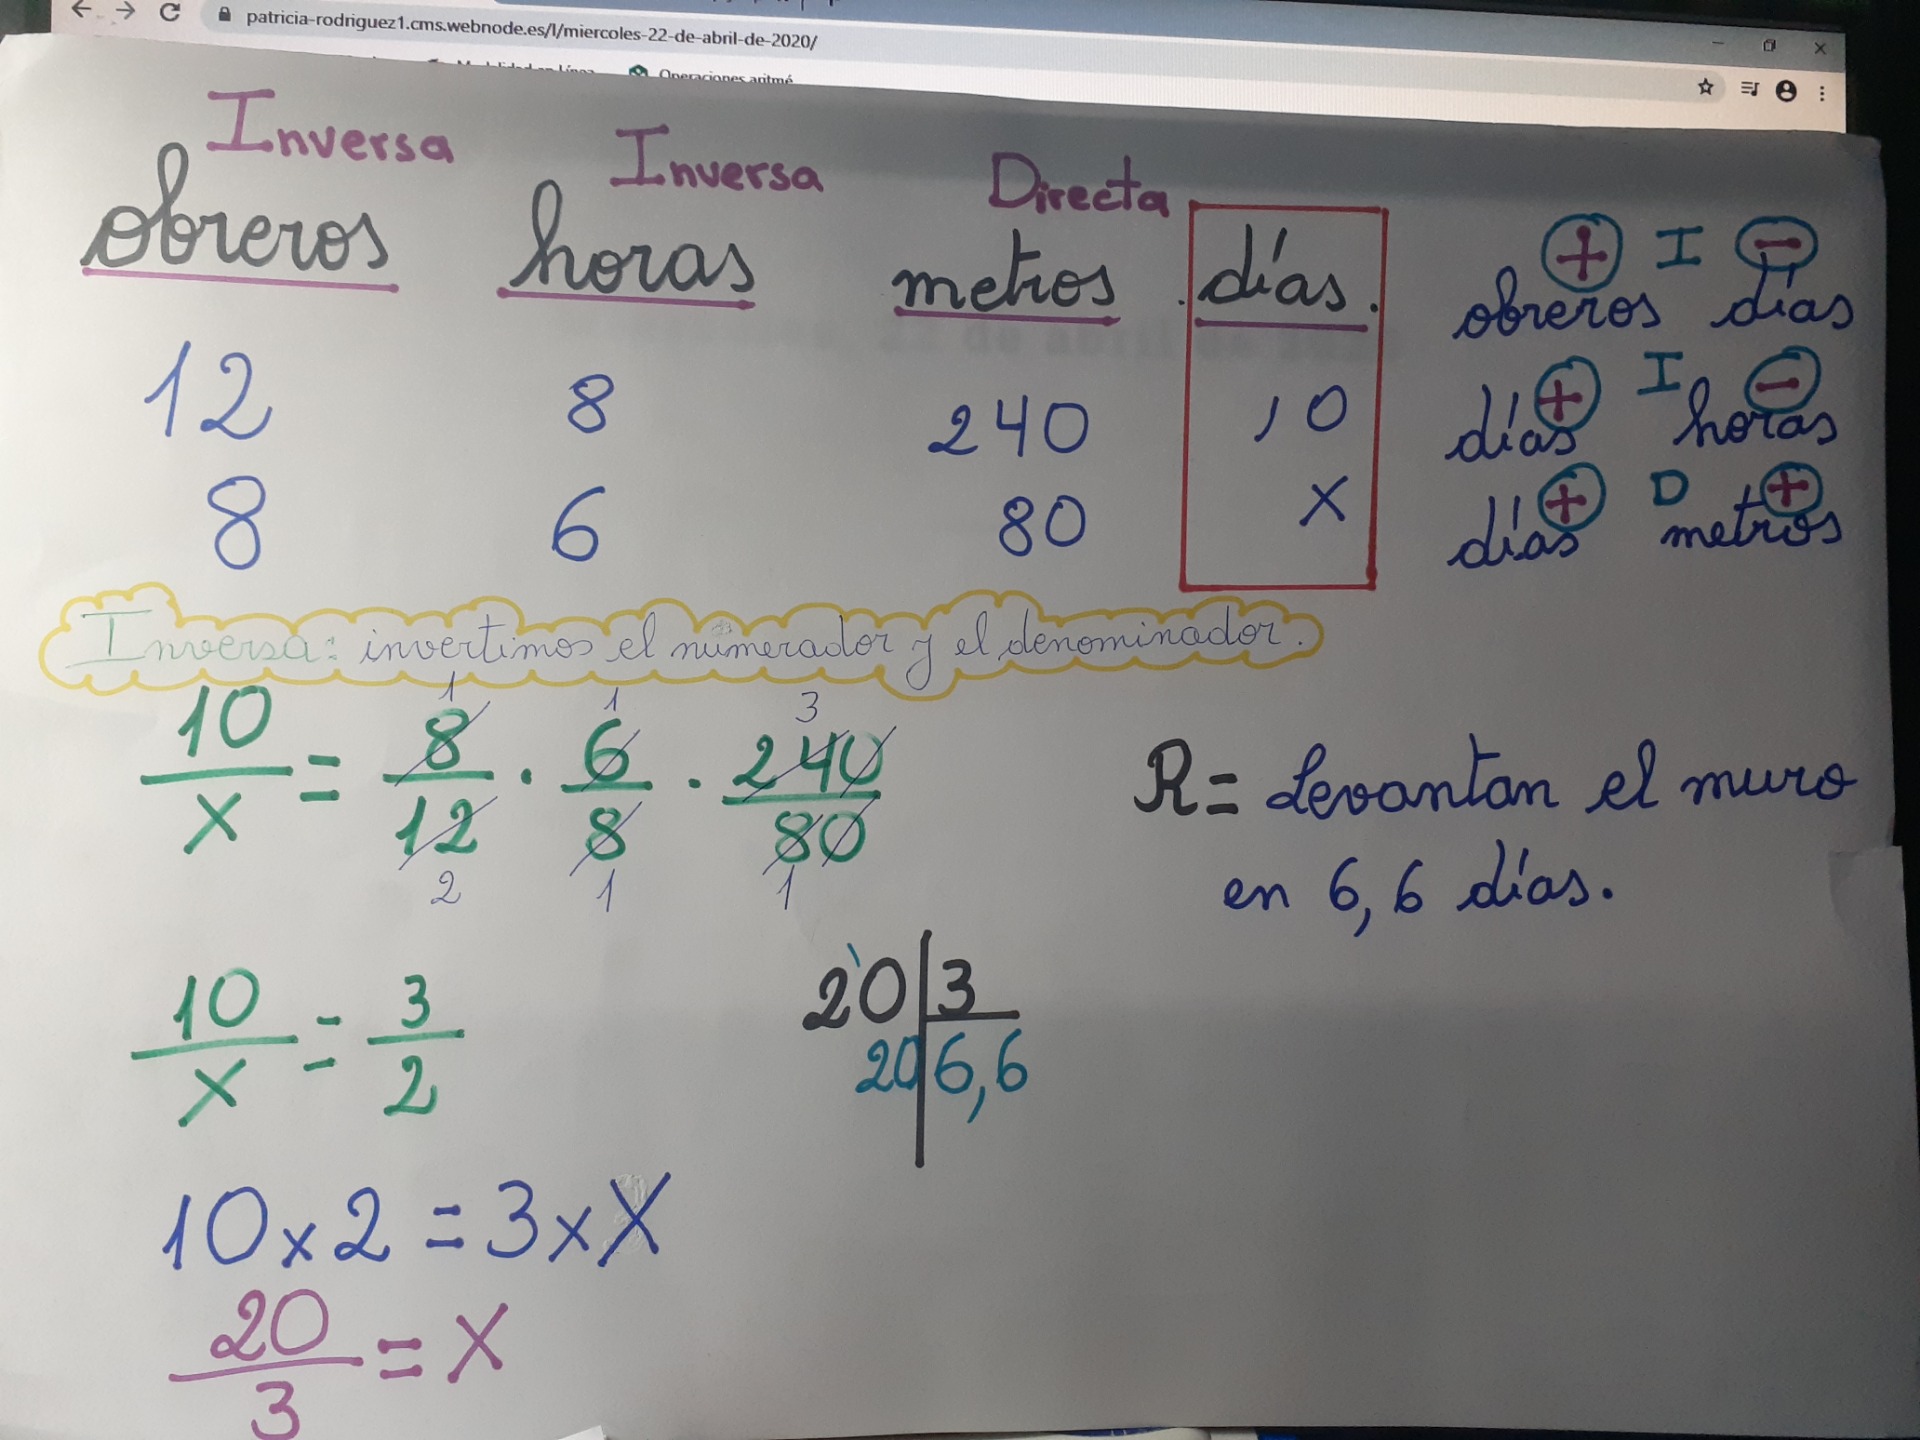 patricia-rodriguez1.cms.webnode.es/l/miercoles-22-de-abril-de-2020/
Operaciones aritmé
Inversa Inversa Directa
obreros horas metros días.
12 8 240 10
8 6 80 x
+ I -
obreros días
+ I -
días horas
+ D +
días metros
Inversa: invertimos el numerador y el denominador.
10/x = 8/12 · 6/8 · 240/80
1 1 3
2 1 1
R= Levantan el muro
en 6,6 días.
10/x = 3/2
20 3
20 6,6
10x2 = 3xX
20/3 = X